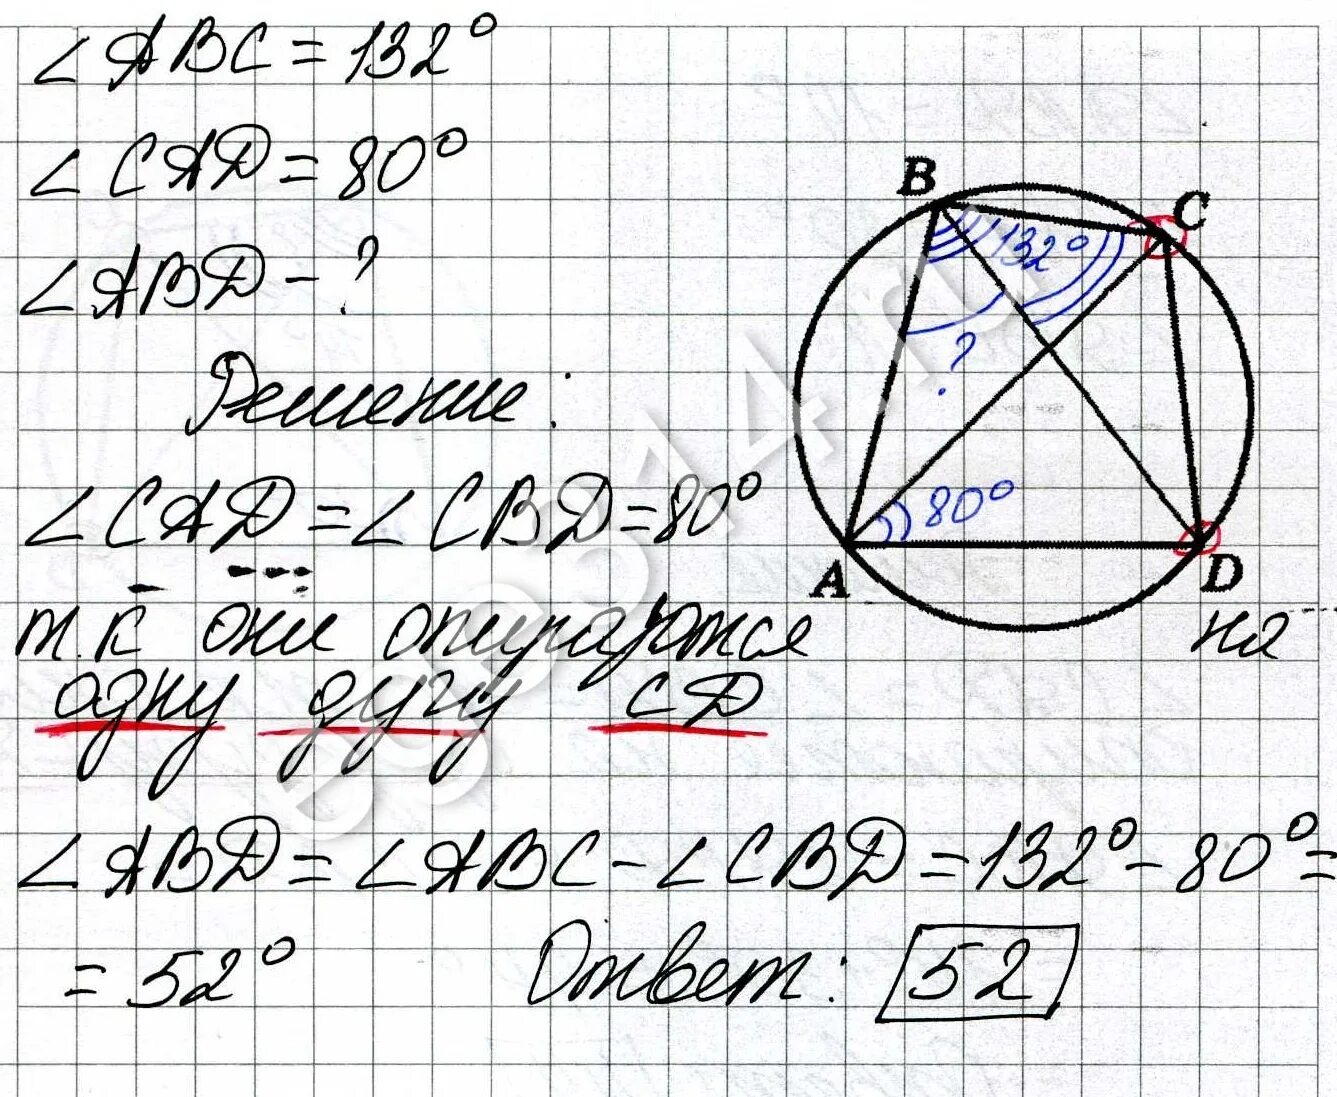 ∠ABC = 132°
∠CAD = 80°
∠ABD - ?
Решение:
∠CAD = ∠CBD = 80°
т.к они опираются на
одну дугу CD
∠ABD = ∠ABC - ∠CBD = 132° - 80° =
= 52°
Ответ: 52
B
C
132°
?
80°
A
D
ege314.ru